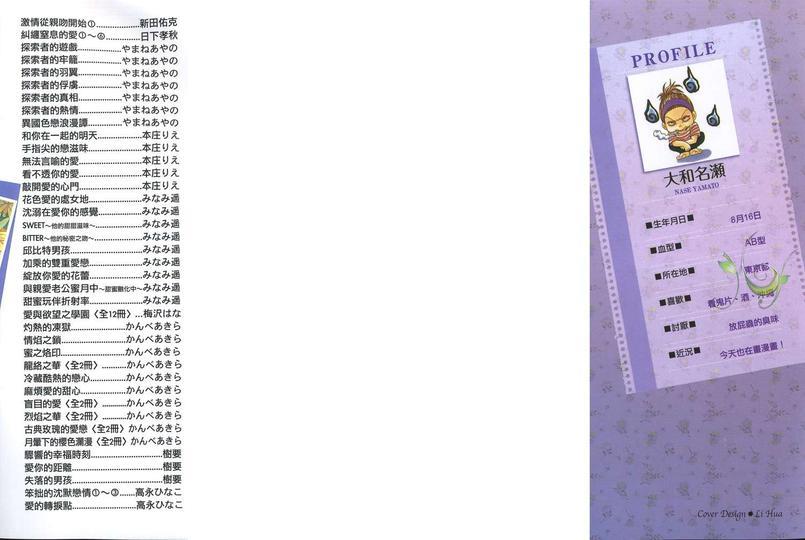 激情從親吻開始①..................新田佑克
糾纏窒息的愛①～④..............日下孝秋
探索者的遊戲....................やまねあやの
探索者的牢籠....................やまねあやの
探索者的羽翼....................やまねあやの
探索者的俘虜....................やまねあやの
探索者的真相....................やまねあやの
探索者的熱情....................やまねあやの
異國色戀浪漫譚..................やまねあやの
和你在一起的明天..................本庄りえ
手指尖的戀滋味....................本庄りえ
無法言喻的愛......................本庄りえ
看不透你的愛......................本庄りえ
敲開愛的心門......................本庄りえ
花色愛的處女地....................みなみ遥
沈溺在愛你的感覺..................みなみ遥
SWEET～他的甜甜滋味～..............みなみ遥
BITTER～他的秘密之吻～.............みなみ遥
邱比特男孩........................みなみ遥
加乘的雙重愛戀....................みなみ遥
綻放你愛的花蕾....................みなみ遥
與親愛老公蜜月中～甜蜜融化中～みなみ遥
甜蜜玩伴折射率....................みなみ遥
愛與欲望之學園〈全12冊〉...梅沢はな
灼熱的凍獄....................かんべあきら
情焰之鎖......................かんべあきら
蜜之烙印......................かんべあきら
龍絡之華〈全2冊〉..........かんべあきら
冷藏酷熱的戀心................かんべあきら
麻煩愛的甜心..................かんべあきら
盲目的愛〈全2冊〉..........かんべあきら
烈焰之華〈全2冊〉..........かんべあきら
古典玫瑰的愛戀〈全2冊〉かんべあきら
月暈下的櫻色瀾漫〈全2冊〉かんべあきら
驟響的幸福時刻........................樹要
愛你的距離............................樹要
失落的男孩............................樹要
笨拙的沈默戀情①～③......高永ひなこ
愛的轉捩點......................高永ひなこ
PROFILE
大和名瀬
NASE YAMATO
■生年月日■ 8月16日
■血型■ AB型
■所在地■ 東京都
■喜歡■ 看鬼片、酒、沖繩
■討厭■ 放屁蟲的臭味
■近況■ 今天也在畫漫畫！
Cover Design ● Li Hua